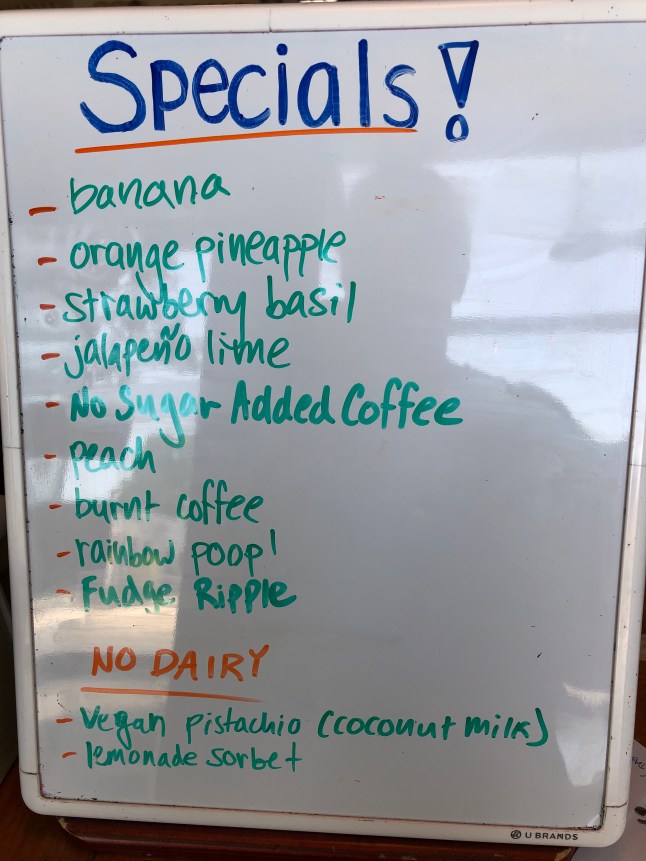 Specials!
- banana
- orange pineapple
- strawberry basil
- jalapeño lime
- No Sugar Added Coffee
- peach
- burnt coffee
- rainbow poop!
- Fudge Ripple
NO DAIRY
- vegan pistachio (coconut milk)
- lemonade sorbet
U BRANDS